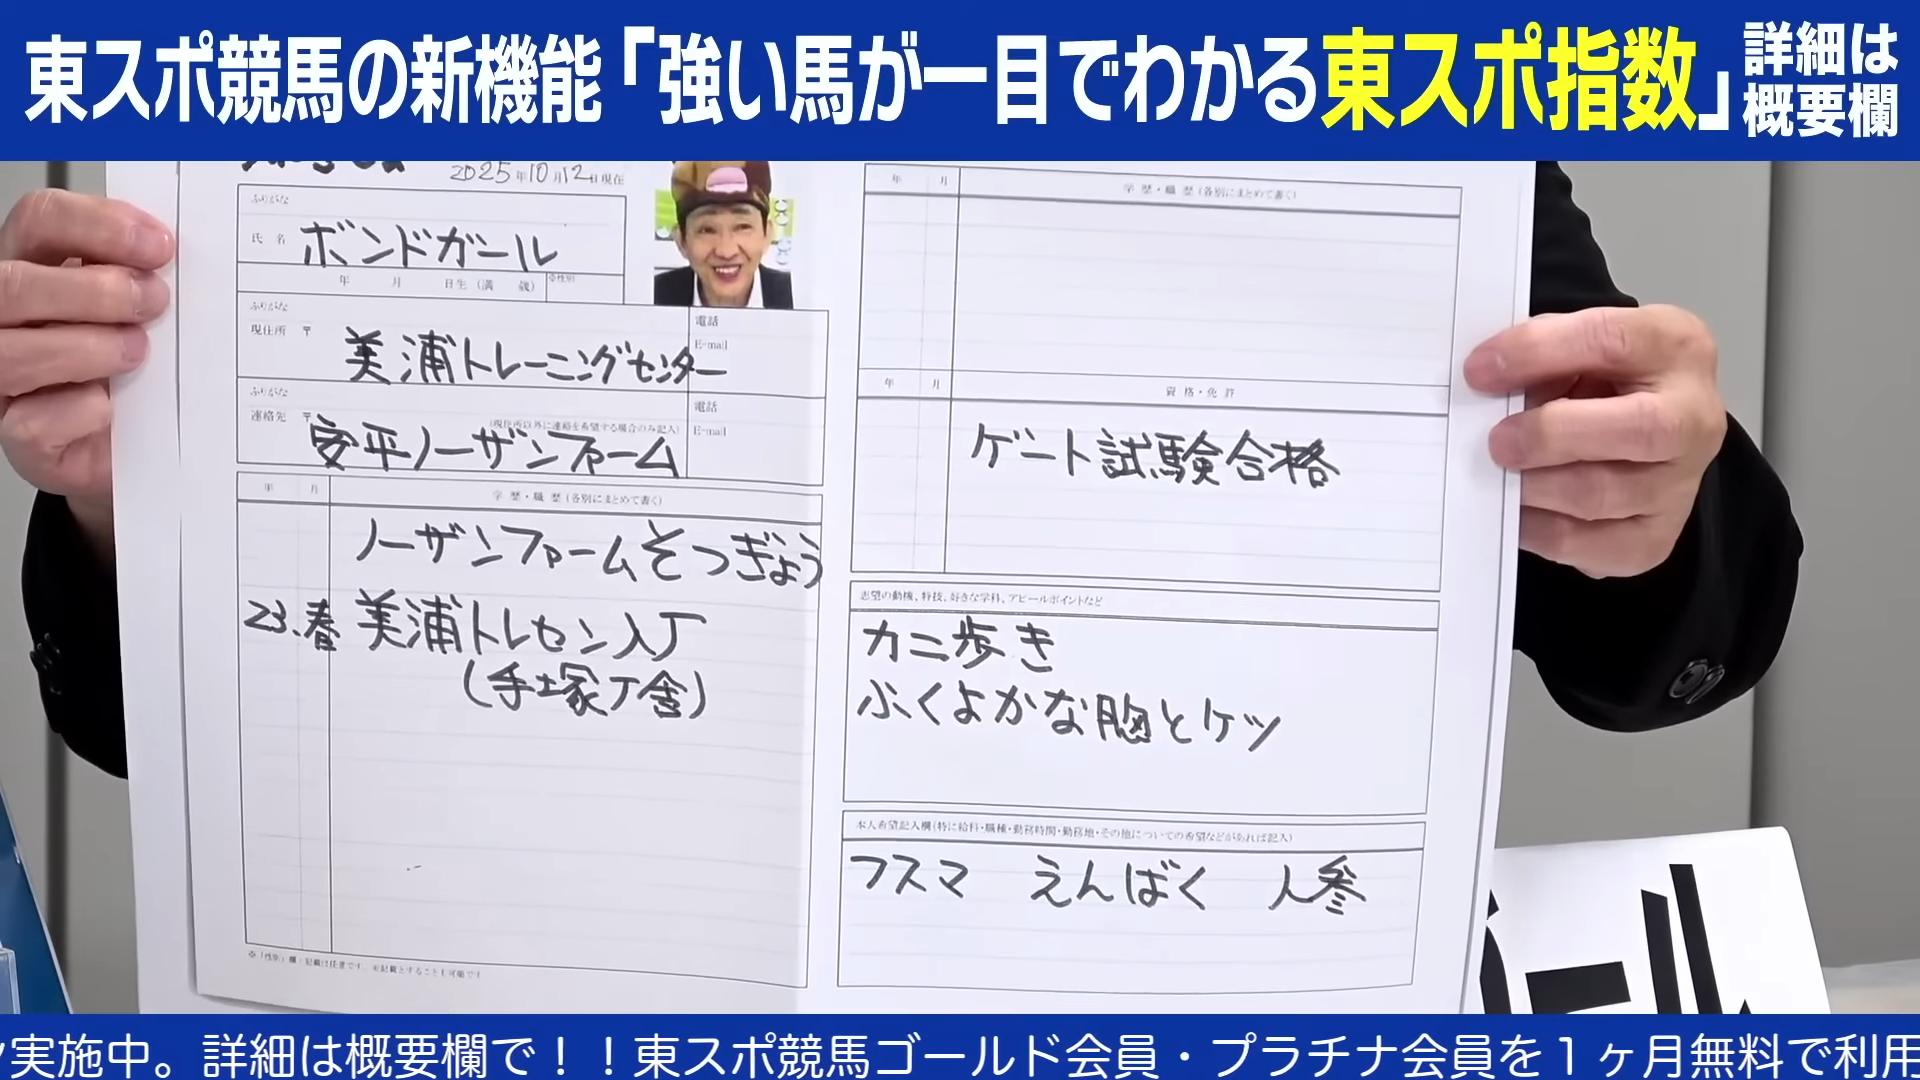 東スポ競馬の新機能「強い馬が一目でわかる東スポ指数」
詳細は
概要欄
2025年10月12日現在
ふりがな
氏 名 ボンドガール
年 月 日生（満 歳） ※性別
ふりがな
現住所 〒 美浦トレーニングセンター
電話
E-mail
ふりがな
連絡先 〒 （現住所以外に連絡を希望する場合のみ記入）
安平ノーザンファーム
電話
E-mail
年 月 学 歴・職 歴（各別にまとめて書く）
ノーザンファームそつぎょう
23.春 美浦トレセン入厂
（手塚厂舎）
年 月 学 歴・職 歴（各別にまとめて書く）
年 月 資 格・免 許
ゲート試験合格
志望の動機、特技、好きな学科、アピールポイントなど
カニ歩き
ふくよかな胸とケツ
本人希望記入欄（特に給料・職種・勤務時間・勤務地・その他についての希望などがあれば記入）
フスマ えんばく 人参
ール
実施中。詳細は概要欄で！！東スポ競馬ゴールド会員・プラチナ会員を１ヶ月無料で利用